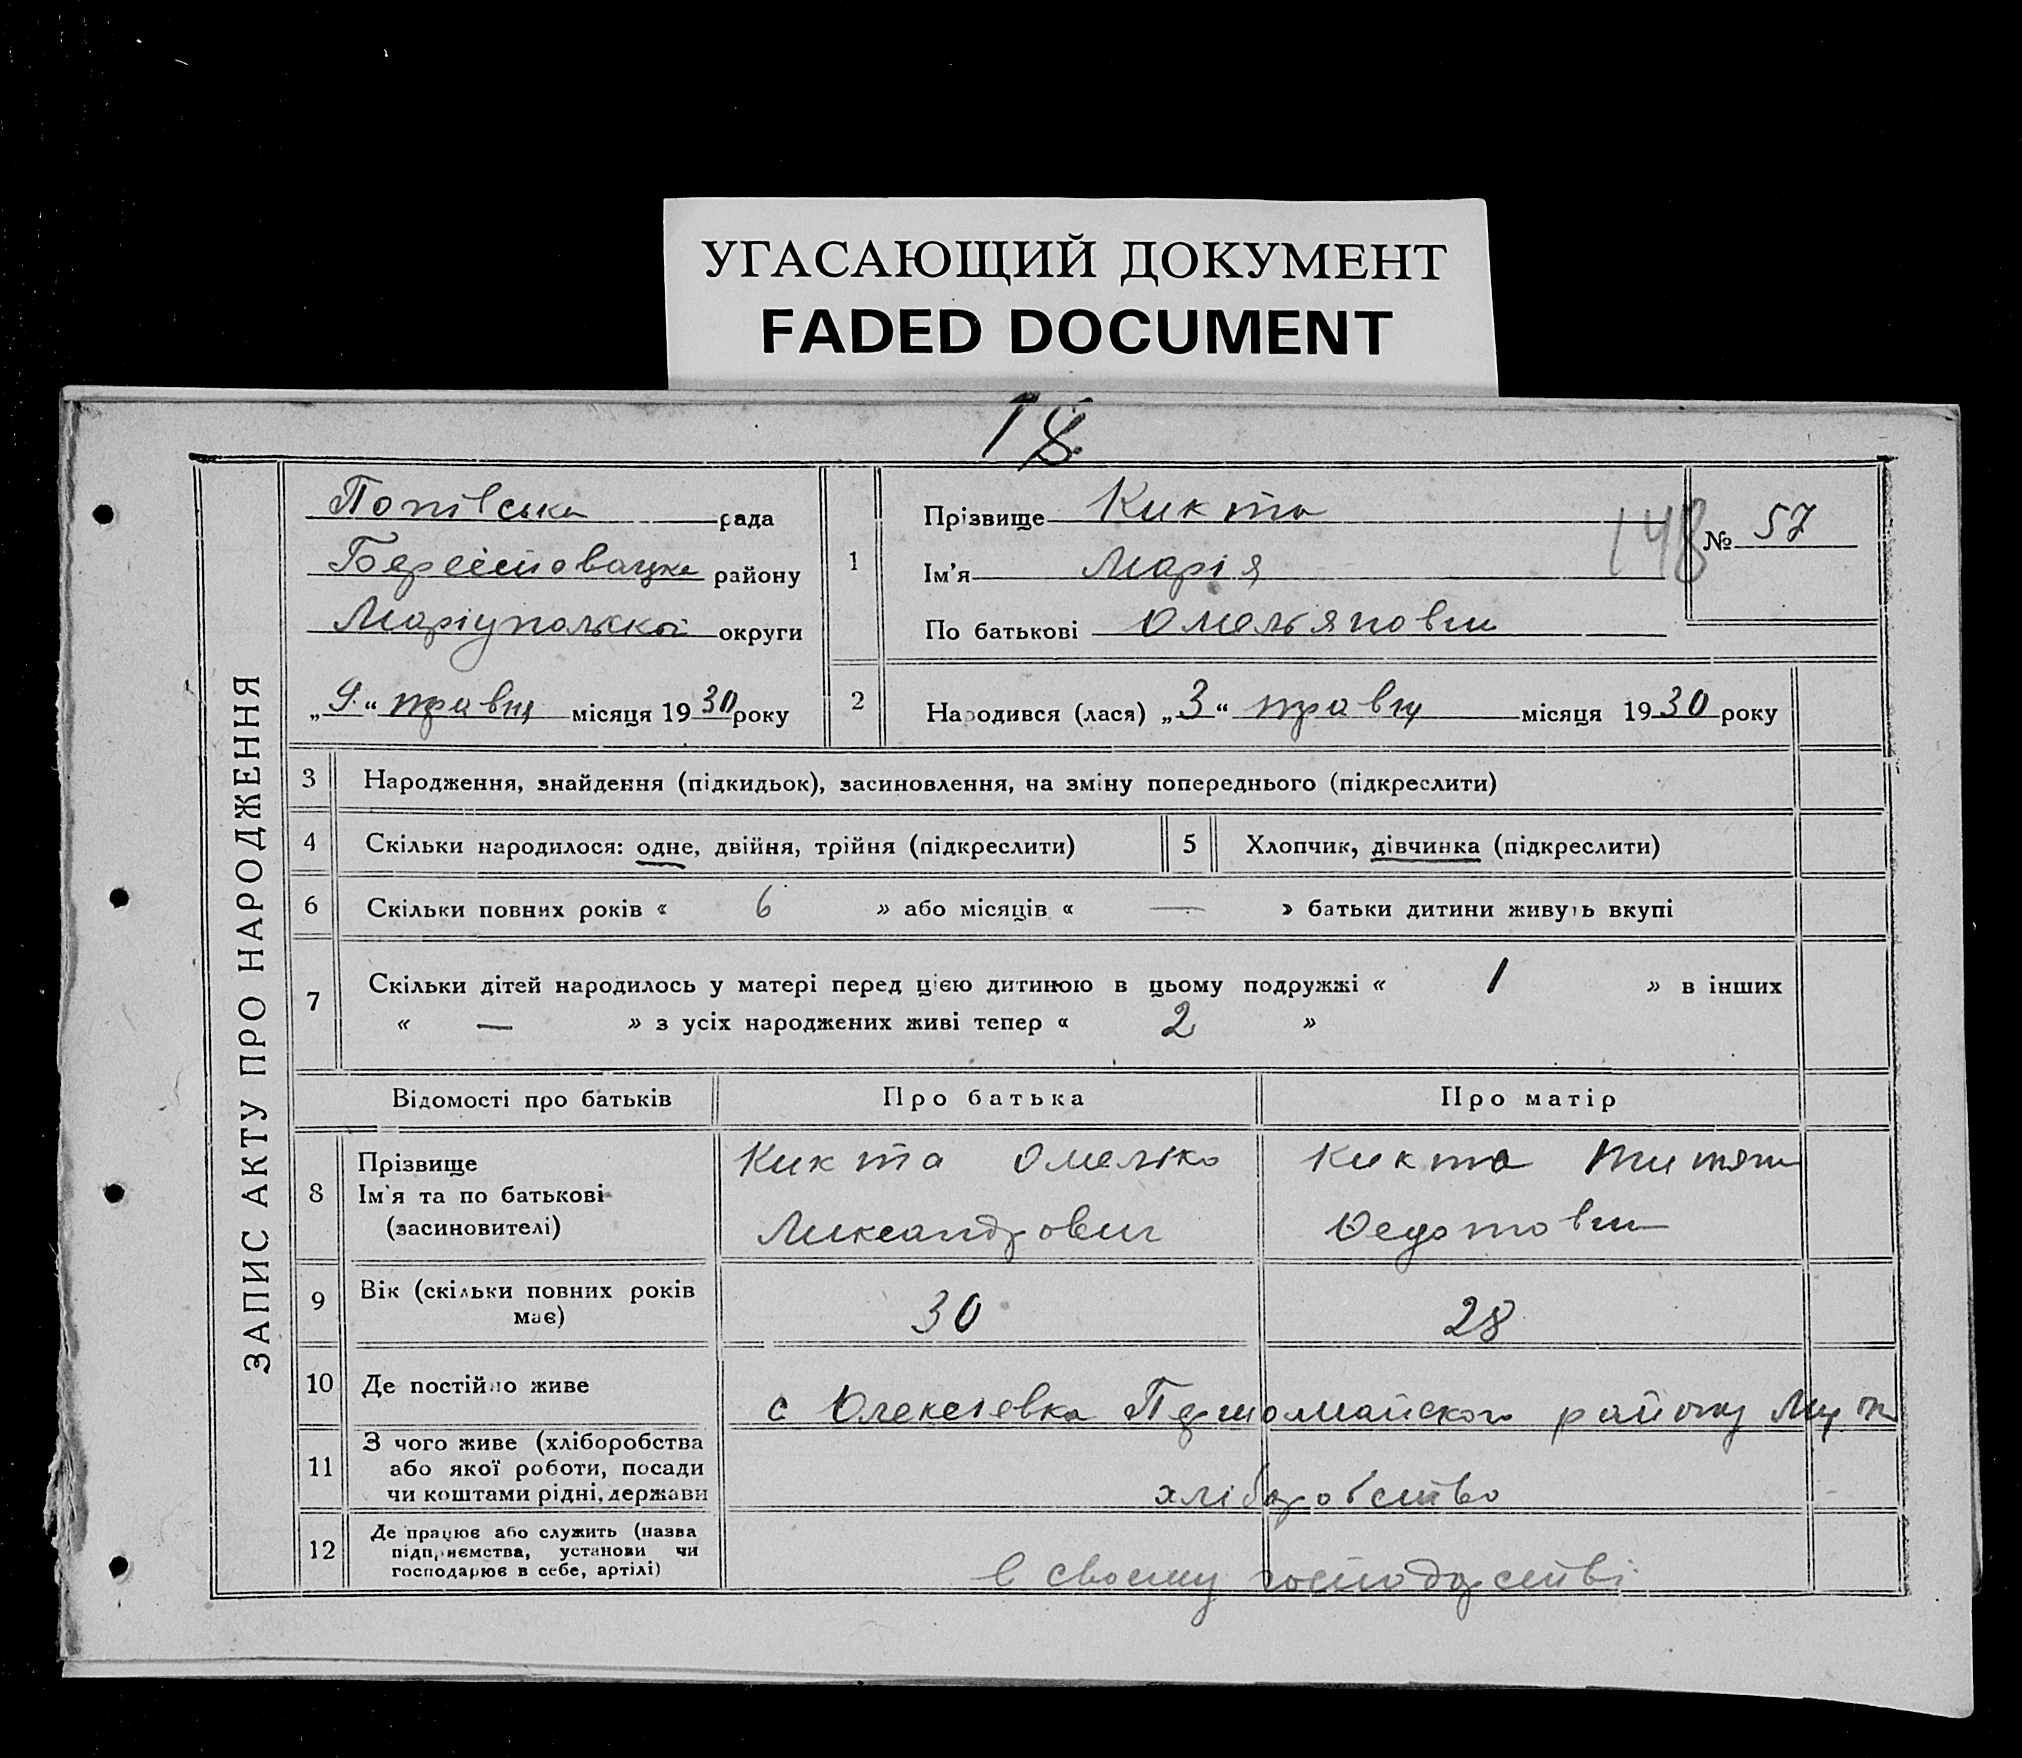 УГАСАЮЩИЙ ДОКУМЕНТ
FADED DOCUMENT
ЗАПИС АКТУ ПРО НАРОДЖЕННЯ
Попівська рада
району
округи
„9“ травня місяця 1930 року
1
Прізвище Кикта
Ім'я Марія
По батькові Омеляновна
148
№ 57
2 Народився (лася) „3“ травня місяця 1930 року
3 Народження, знайдення (підкидьок), засиновлення, на зміну попереднього (підкреслити)
4 Скільки народилося: одне, двійня, трійня (підкреслити)
5 Хлопчик, дівчинка (підкреслити)
6 Скільки повних років « 6 » або місяців « — » батьки дитини живуть вкупі
7 Скільки дітей народилось у матері перед цією дитиною в цьому подружжі « 1 » в інших
« — » з усіх народжених живі тепер « 2 »
Відомості про батьків Про батька Про матір
8 Прізвище
Ім'я та по батькові
(засиновителі)
Кикта Омелько
Кикта
9 Вік (скільки повних років
має)
30 28
10 Де постійно живе
с Олексієвка Першомайского району
11 З чого живе (хліборобства
або якої роботи, посади
чи коштами рідні, держави
хліборобство
12 Де працює або служить (назва
підприємства, установи чи
господарює в себе, артілі)
в своєму господарстві